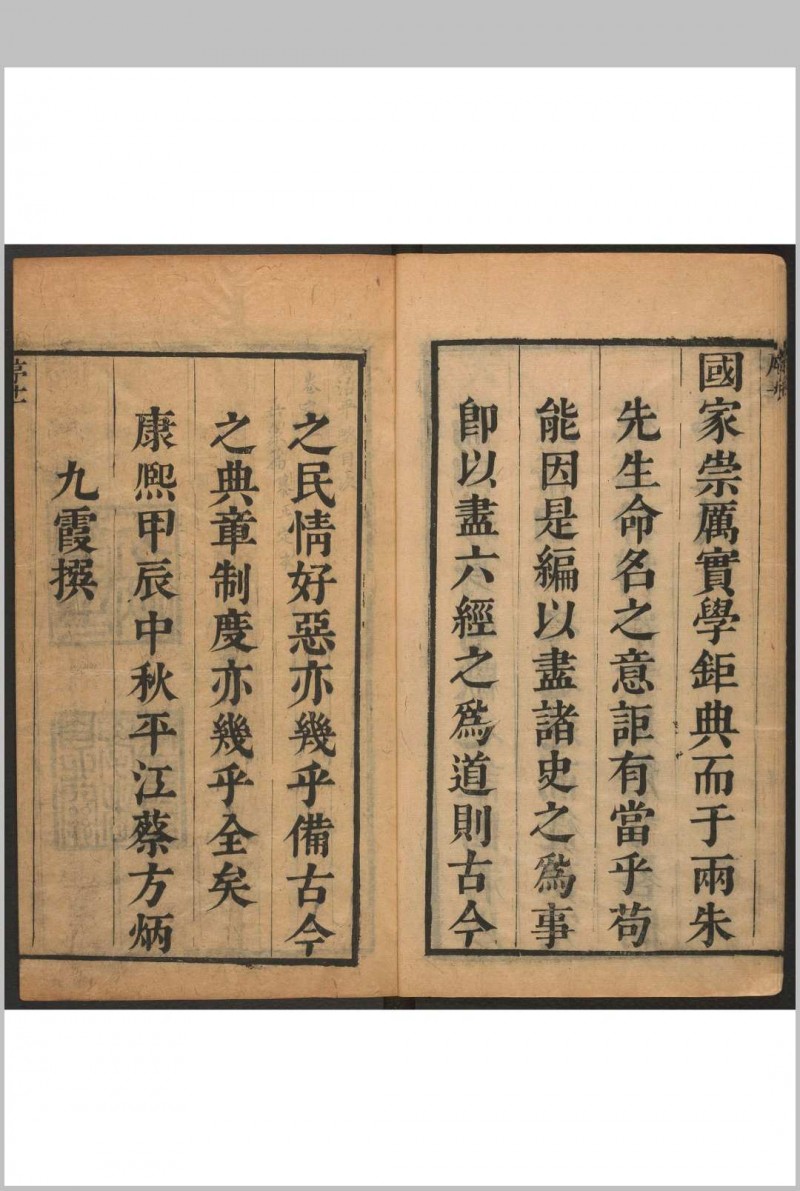 國家崇厲實學鉅典而于兩朱
先生命名之意詎有當乎苟
能因是編以盡諸史之爲事
卽以盡六經之爲道則古今
之民情好惡亦幾乎備古今
之典章制度亦幾乎全矣
康熙甲辰中秋平江蔡方炳
九霞撰